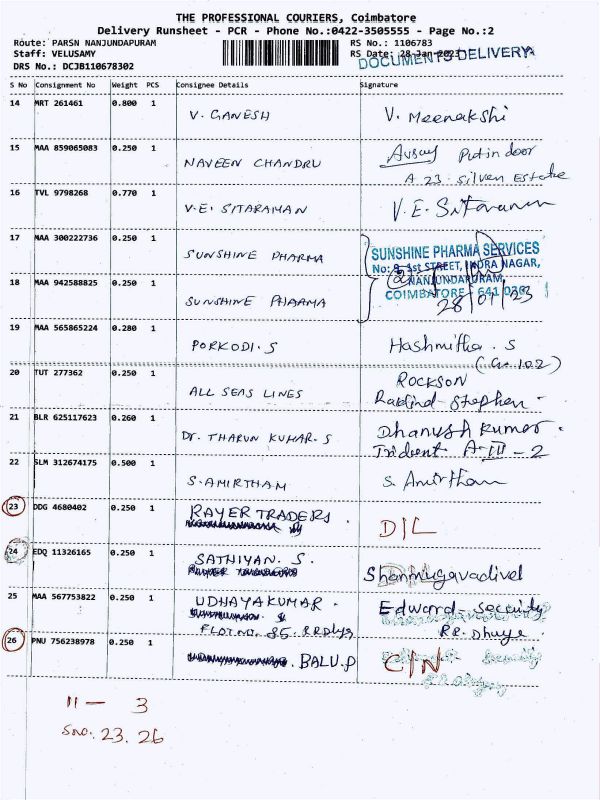 THE PROFESSIONAL COURIERS, Coimbatore
Delivery Runsheet - PCR - Phone No.:0422-3505555 - Page No.:2
Route: PARSN NANJUNDAPURAM
RS No.: 1106783
Staff: VELUSAMY
RS Date: 28-Jan-2023
DOCUMENTS DELIVERY
DRS No.: DCJB110678302
S No Consignment No Weight PCS Consignee Details Signature
14 MRT 261461 0.800 1 V. GANESH V. Meenakshi
15 MAA 859065083 0.250 1 NAVEEN CHANDRU Put in door
A 23 silver Estate
16 TVL 9798268 0.770 1 V.E. SITARAMAN V.E. Sitaraman
17 MAA 300222736 0.250 1 SUNSHINE PHARMA
SUNSHINE PHARMA SERVICES
No: 9, 1st STREET, INDRA NAGAR,
NANJUNDAPURAM,
COIMBATORE - 641 036
18 MAA 942588825 0.250 1 SUNSHINE PHARMA 28/01/23
19 MAA 565865224 0.280 1 PORKODI. S Hashmitha. S
20 TUT 277362 0.250 1 ALL SEAS LINES ROCKSON
Stephen
21 BLR 625117623 0.260 1 Dr. THARUN KUMAR. S Dhanush kumar.
Trident A-III - 2
22 SLM 312674175 0.500 1 S. AMIRTHAM S. Amirtham
23 DDG 4680402 0.250 1 RAYER TRADERS D/L
24 EDQ 11326165 0.250 1 SATHIYAN. S. Shanmugavadivel
25 MAA 567753822 0.250 1 UDHAYAKUMAR. Edward - Security
FLOT NO. 85
26 PNU 756238978 0.250 1 BALU. P C/N
11 - 3
Sno. 23. 26